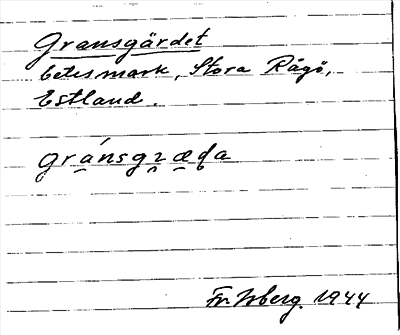 Gransgärdet
betesmark, Stora Rågö,
Estland.
gránsgɿæda
1944